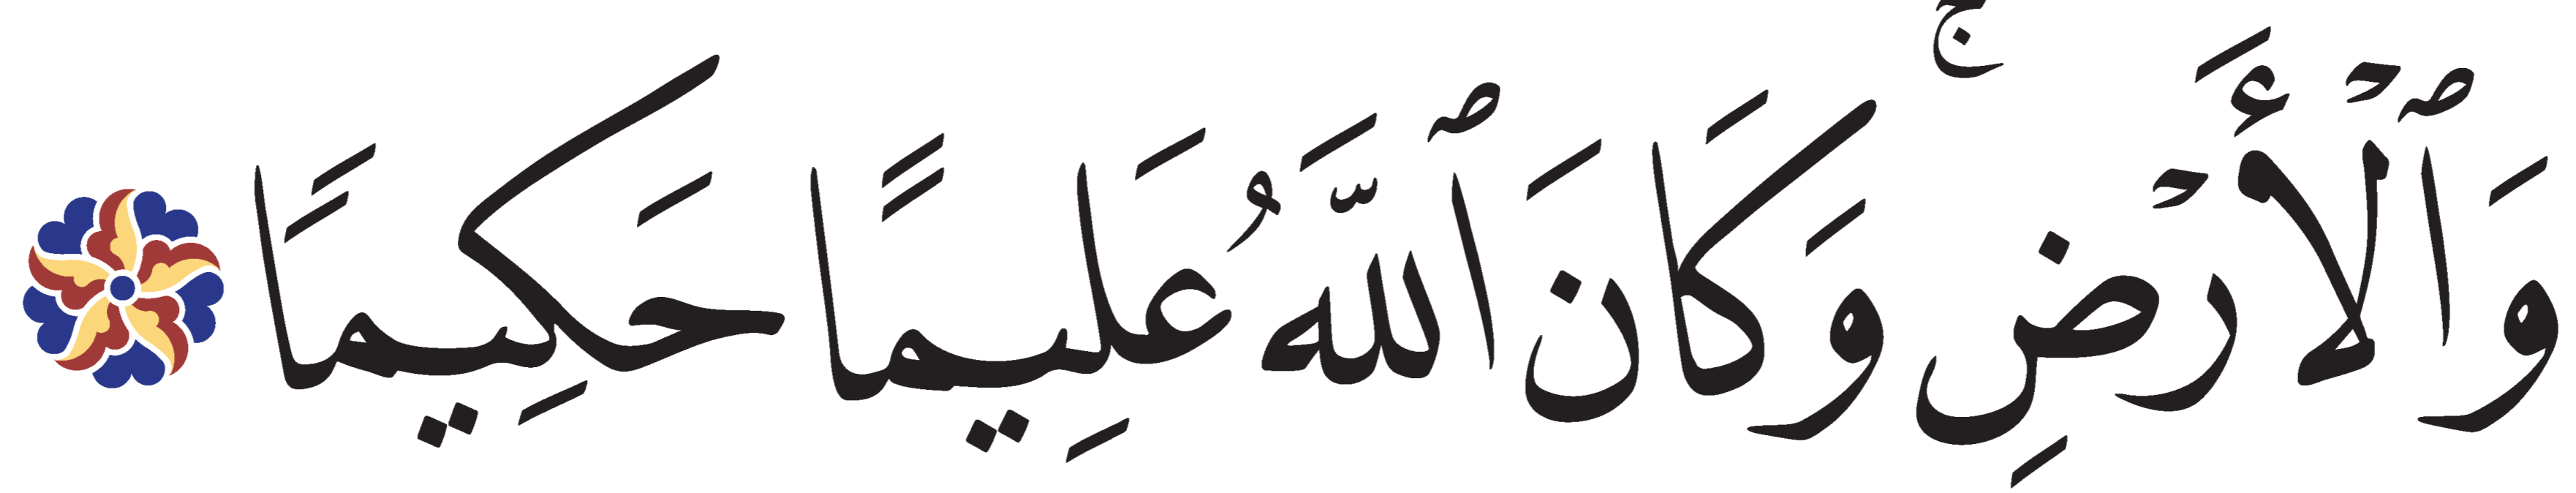 وَٱلْأَرْضِ ۚ وَكَانَ ٱللَّهُ عَلِيمًا حَكِيمًا